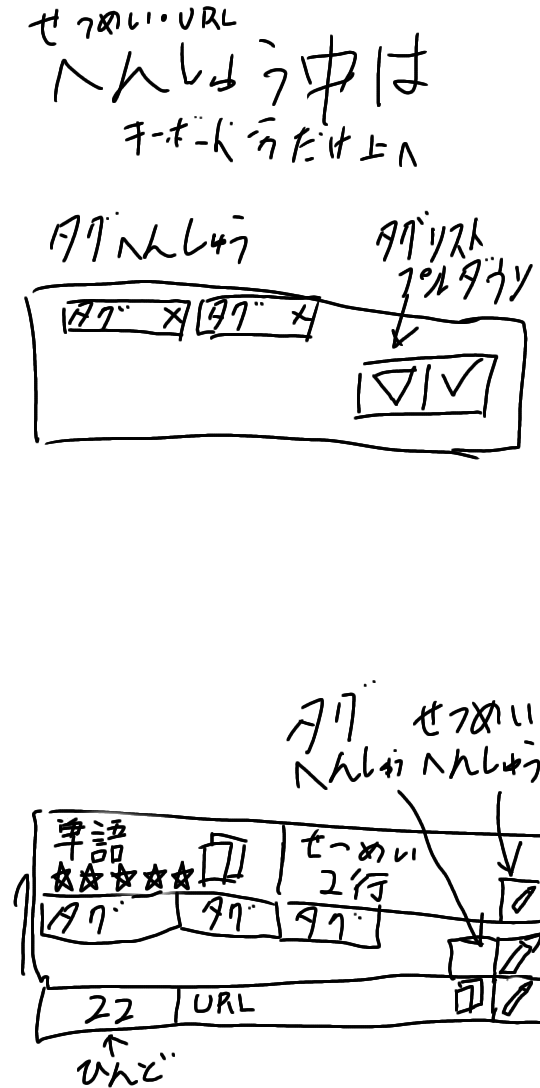 せつめい・URL
へんしゅう中は
キーボード分だけ上へ
タグへんしゅう
タグリスト
プルダウン
タグ × タグ ×
タグ
へんしゅう
せつめい
へんしゅう
単語
☆☆☆☆☆
せつめい
2行
タグ タグ タグ
22 URL
ひんど